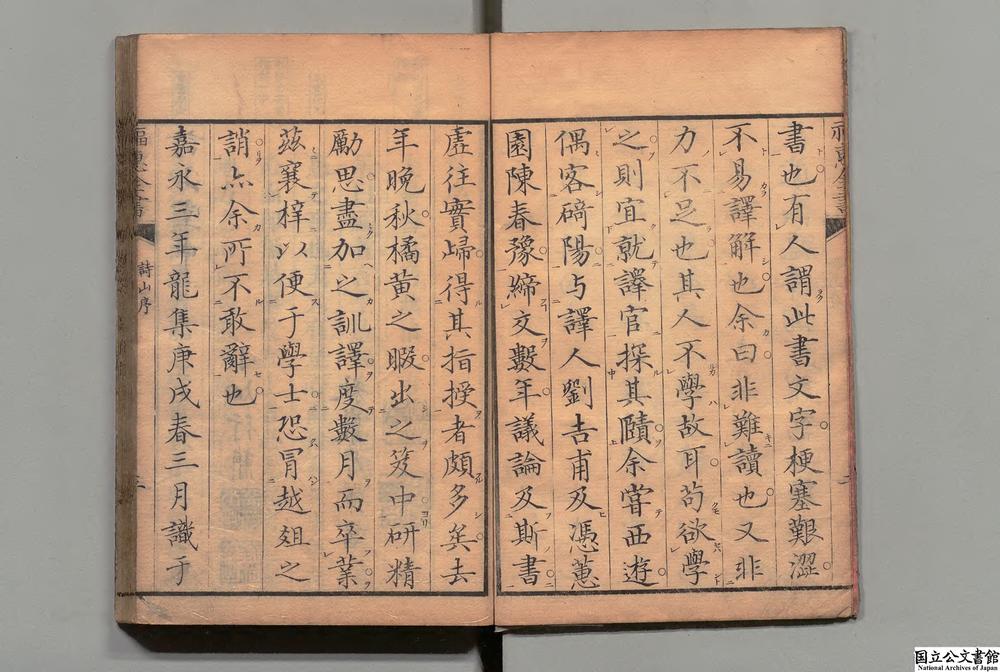 書也有人謂此書文字梗塞艱澀
不易譯解也余曰非難讀也又非
力不足也其人不學故耳苟欲學
之則宜就譯官探其賾余嘗西遊
偶客碕陽与譯人劉吉甫及馮蕙
園陳春豫締交數年議論及斯書
虛往實歸得其指授者頗多矣去
年晚秋橘黃之暇出之笈中研精
勵思盡加之訓譯度數月而卒業
茲襄梓以便于學士恐冒越爼之
誚然余所不敢辭也
嘉永三年龍集庚戌春三月識于
福惠全書
詩山序
三
国立公文書館
National Archives of Japan